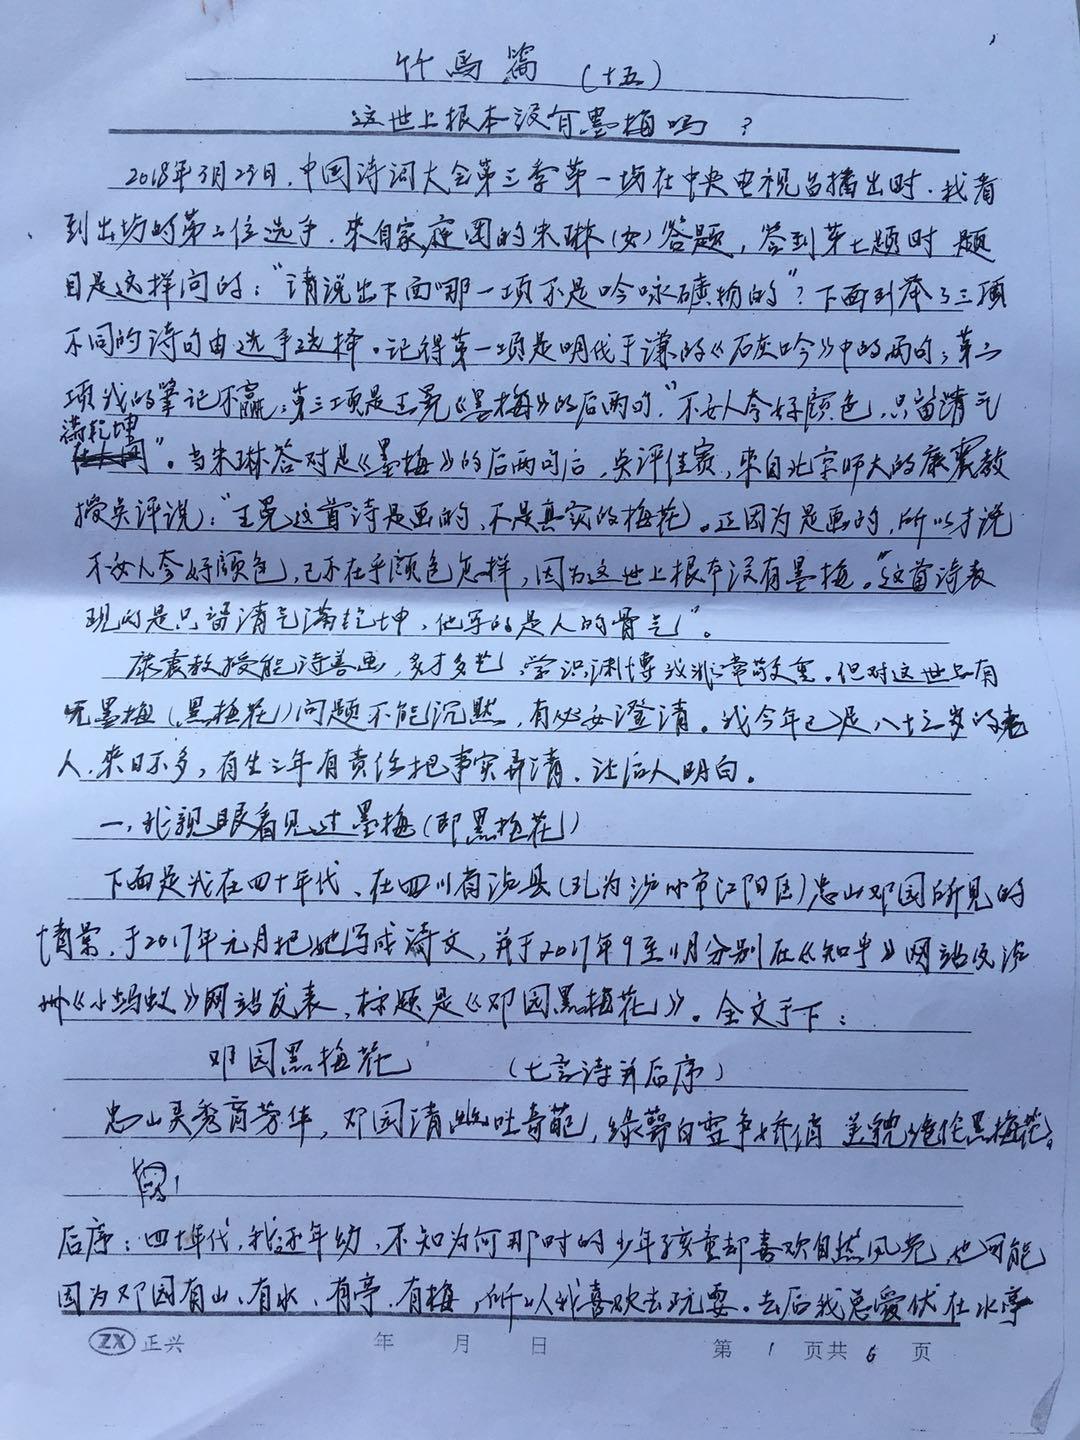 竹马篇(十五)
这世上根本没有墨梅吗?
2018年3月23日，中国诗词大会第三季第一场在中央电视台播出时，我看
到出场的第二位选手，来自家庭团的朱琳(女)答题，答到第七题时 题
目是这样问的："请说出下面哪一项不是吟咏礦物的"?下面列举了三項
不同的诗句由选手选择。记得第一项是明代于谦的《石灰吟》中的两句；第二
项我的筆记不赢；第三项是王冕《墨梅》的后两句，"不要人夸好颜色，只留清气
满乾坤
"。当朱琳答对是《墨梅》的后两句后，点评佳宾，来自北京师大的康震教
授点评说："王冕这首诗是画的，不是真实的梅花。正因为是画的，所以才说
不要人夸好颜色，已不在乎颜色怎样，因为这世上根本没有墨梅。"这首诗表
现的是只留清气满乾坤，他写的是人的骨气"。
康震教授能诗善画，多才多艺，学识渊博我非常敬重。但对这世上有
无墨梅(黑梅花)问题不能沉默，有必要澄清。我今年已是八十三岁的老
人，来日不多，有生之年有责任把事实弄清，让后人明白。
一，我亲眼看见过墨梅(即黑梅花)
下面是我在四十年代、在四川省泸县(现为泸州市江阳区)忠山邓园所见的
情景，于2017年元月把她写成诗文，并于2017年9至11月分别在《知乎》网站及泸
州《小蚂蚁》网站发表，标题是《邓园黑梅花》。全文于下：
邓园黑梅花 (七言诗并后序)
忠山灵秀育芳华，邓园清幽吐奇葩，绿萼白雪争娇俏 美貌绝伦黑梅花。
后序：四十年代，我还年幼，不知为何那时的少年孩童却喜欢自然风光，也可能
因为邓园有山、有水、有亭、有梅，所以我喜欢去玩耍。去后我总爱伏在水亭
ZX 正兴 年 月 日 第 1 页共 6 页